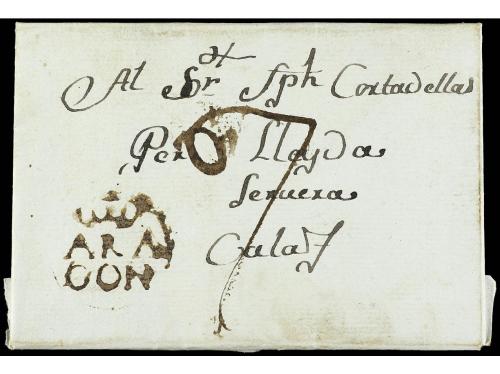 Al Sr. Dn Jph Cortadellas
Per Lleyda
Servera
Calaf
7
ARA
GON